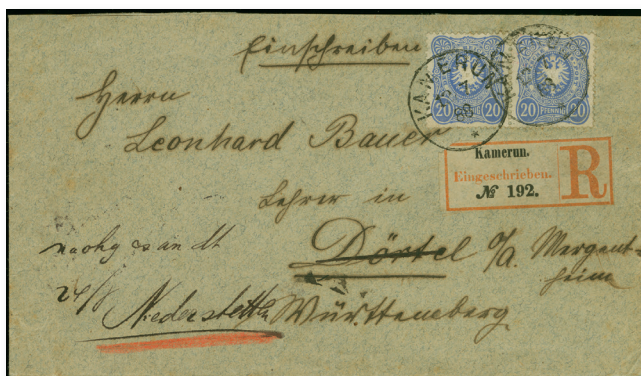 Einschreiben
KAMERUN
88
20 PFENNIG 20
20 PFENNIG 20
Herrn
Leonhard Bauer
Kamerun.
Eingeschrieben.
№ 192.
R
Lehrer in
Dörtel O/A. Mergent-
heim
Württemberg
nachgesandt
24/8
Niederstetten